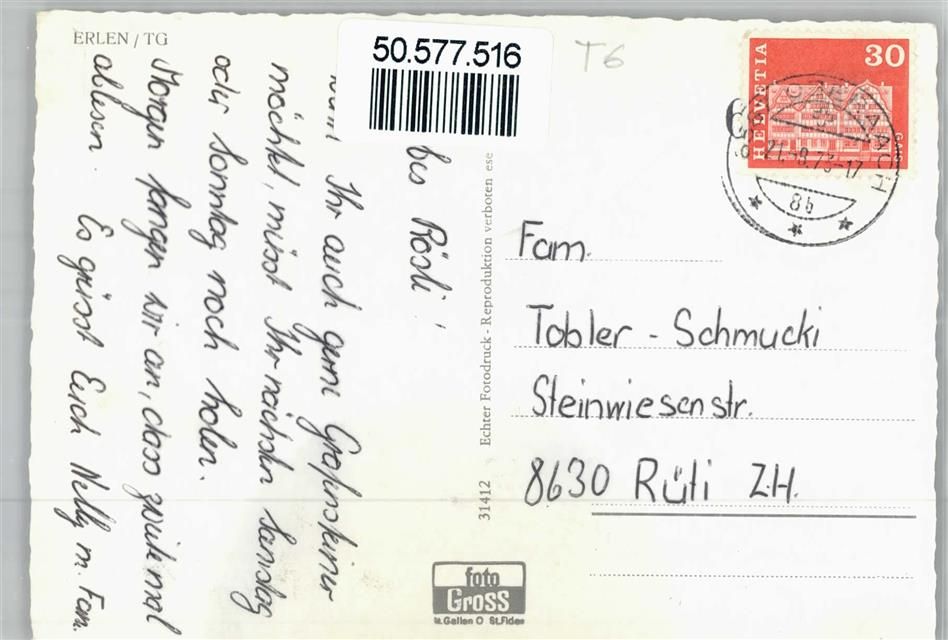 ERLEN / TG
50.577.516
T6
HELVETIA
30
GAIS
21.-8.73-17
8b
bes Rösli!
Ihr auch gerne Grafensteiner
möchtet, müsst Ihr nächsten Samstag
oder Sonntag noch holen.
Morgen fangen wir an, das zweite mal
ablesen. Es grüsst Euch Nelly m. Fam.
Echter Fotodruck - Reproduktion verboten ese
31412
Fam.
Tobler - Schmucki
Steinwiesenstr.
8630 Rüti ZH.
foto
Gross
St.Gallen O St.Fiden